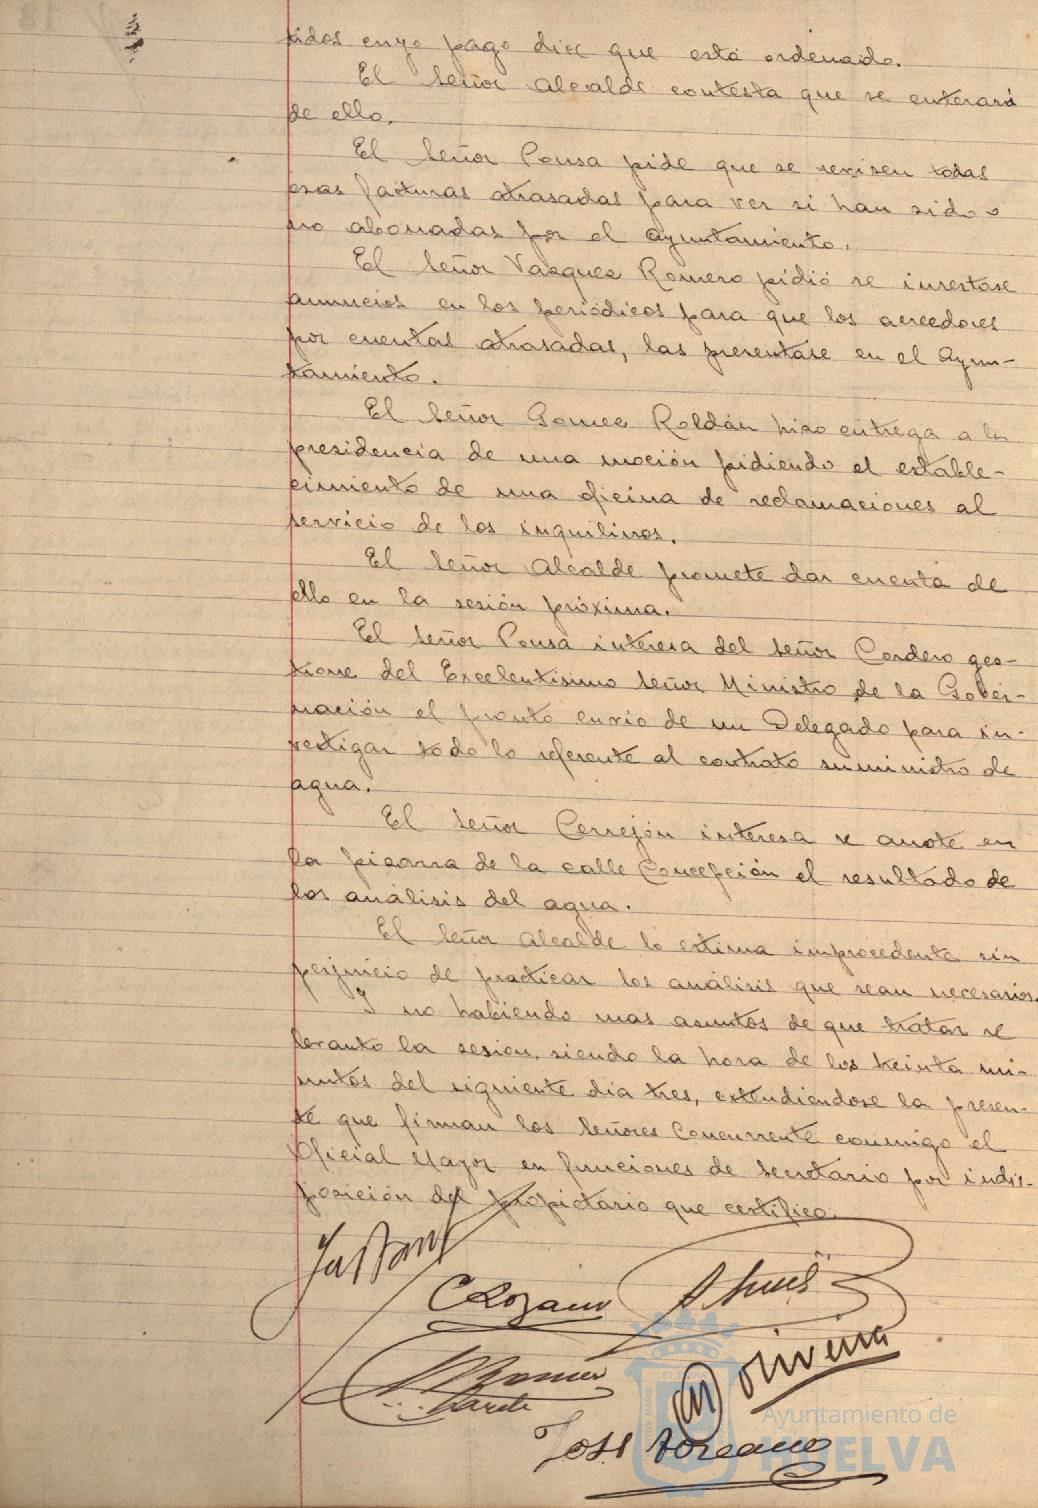 tidos cuyo pago dice que está ordenado.
El Señor Alcalde contesta que se enterará
de ello.
El Señor Ponsa pide que se revisen todas
esas facturas atrasadas para ver si han sido o
no abonadas por el Ayuntamiento.
El Señor Vazquez Romero pidió se insertase
anuncios en los periódicos para que los acreedores
por cuentas atrasadas, las presentase en el Ayun-
tamiento.
El Señor Gomez Roldán hizo entrega a la
presidencia de una moción pidiendo el estable-
cimiento de una oficina de reclamaciones al
servicio de los inquilinos.
El Señor Alcalde promete dar cuenta de
ello en la sesión próxima.
El Señor Ponsa interesa del Señor Cordero ges-
tione del Excelentisimo Señor Ministro de la Gober-
nación el pronto envio de un Delegado para in-
vestigar todo lo referente al contrato suministro de
agua.
El Señor Cerrejón interesa se anote en
la pizarra de la calle Concepción el resultado de
los análisis del agua.
El Señor Alcalde lo estima improcedente sin
perjuicio de practicar los análisis que sean necesarios.
Y no habiendo mas asuntos de que tratar se
levanto la sesion, siendo la hora de los treinta mi-
nutos del siguiente dia tres, extendiendose la presen-
te que firman los Señores Concurrente conmigo el
Oficial Mayor en funciones de Secretario por indis-
posición del propietario que certifico.
C Lozano
Romero
Oliveira
José Lozcano
Ayuntamiento de
HUELVA